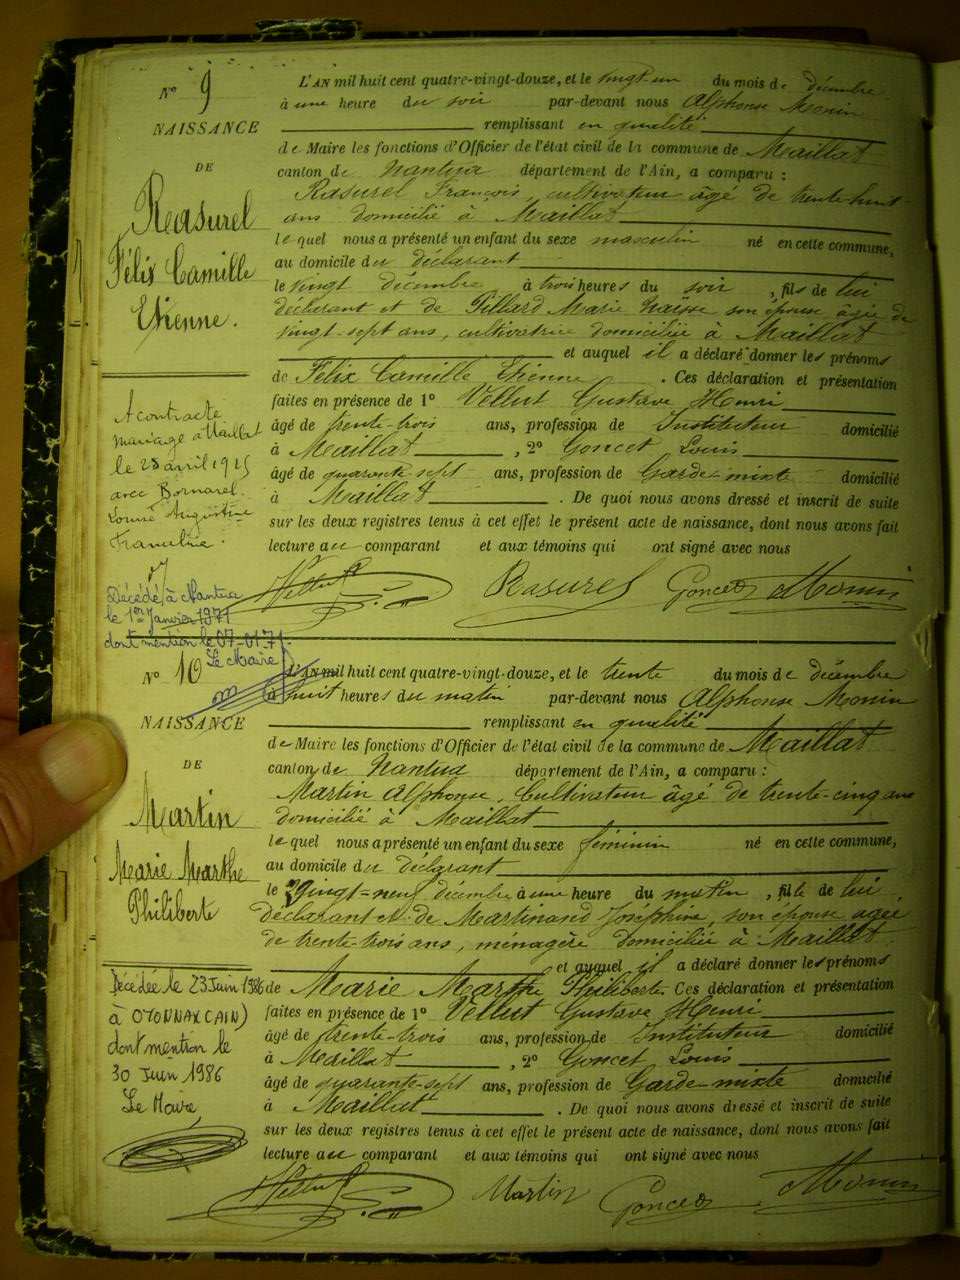 N° 9
NAISSANCE
DE
Rasurel
Félix Camille
Etienne.
A contracté
mariage à Maillat
le 28 avril 1925
avec Bornarel
Louise Augustine
Décédé à Nantua
le 1er Janvier 1971
dont mention le 07-01-71
Le Maire
L'AN mil huit cent quatre-vingt-douze, et le vingt-un du mois de décembre
à une heure du soir par-devant nous Alphonse Monin
remplissant en qualité
de Maire les fonctions d'Officier de l'état civil de la commune de Maillat
canton de Nantua département de l'Ain, a comparu :
Rasurel François, cultivateur âgé de trente-huit
ans domicilié à Maillat
lequel nous a présenté un enfant du sexe masculin né en cette commune,
au domicile du déclarant
le vingt décembre à trois heures du soir, fils de lui
déclarant et de Pillard Marie son épouse âgée de
vingt-sept ans, cultivatrice domiciliée à Maillat
et auquel il a déclaré donner les prénoms
de Félix Camille Etienne. Ces déclaration et présentation
faites en présence de 1° Vellut Gustave Henri
âgé de trente-trois ans, profession de Instituteur domicilié
à Maillat, 2° Goncet Louis
âgé de quarante-sept ans, profession de Garde-mixte domicilié
à Maillat. De quoi nous avons dressé et inscrit de suite
sur les deux registres tenus à cet effet le présent acte de naissance, dont nous avons fait
lecture au comparant et aux témoins qui ont signé avec nous
Vellut Rasurel Goncet Monin
N° 10
NAISSANCE
DE
Martin
Marie Marthe
Philiberte
Décédée le 23 Juin 1986
à OYONNAX (AIN)
dont mention le
30 Juin 1986
Le Maire
L'AN mil huit cent quatre-vingt-douze, et le trente du mois de décembre
à huit heures du matin par-devant nous Alphonse Monin
remplissant en qualité
de Maire les fonctions d'Officier de l'état civil de la commune de Maillat
canton de Nantua département de l'Ain, a comparu :
Martin Alphonse, Cultivateur âgé de trente-cinq ans
domicilié à Maillat
lequel nous a présenté un enfant du sexe féminin né en cette commune,
au domicile du déclarant
le vingt-neuf décembre à une heure du matin, fille de lui
déclarant et de Martinand Joséphine, son épouse âgée
de trente-trois ans, ménagère domiciliée à Maillat.
et auquel il a déclaré donner les prénoms
de Marie Marthe Philiberte Ces déclaration et présentation
faites en présence de 1° Vellut Gustave Henri
âgé de trente-trois ans, profession de Instituteur domicilié
à Maillat, 2° Goncet Louis
âgé de quarante-sept ans, profession de Garde-mixte domicilié
à Maillat. De quoi nous avons dressé et inscrit de suite
sur les deux registres tenus à cet effet le présent acte de naissance, dont nous avons fait
lecture au comparant et aux témoins qui ont signé avec nous
Vellut Martin Goncet Monin